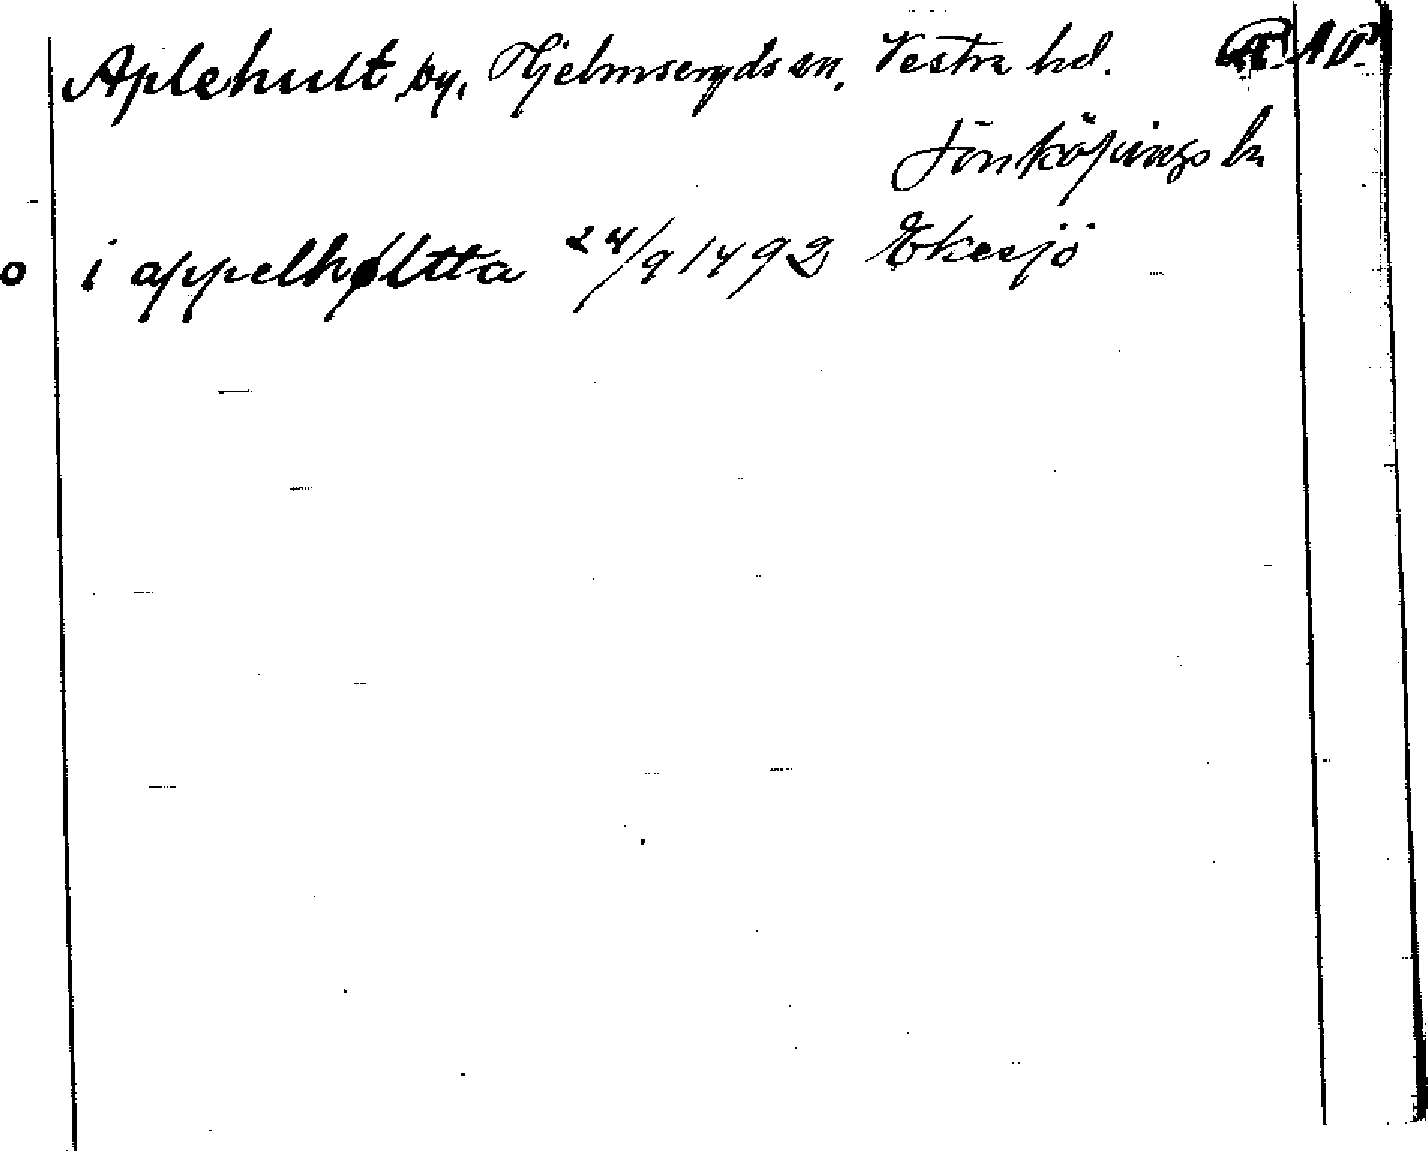 Aplehult by, Hjelmseryds sn, Vestra hd.
Jönköpings ln
o i appelhøltta 24/9 1492 Ekesjö